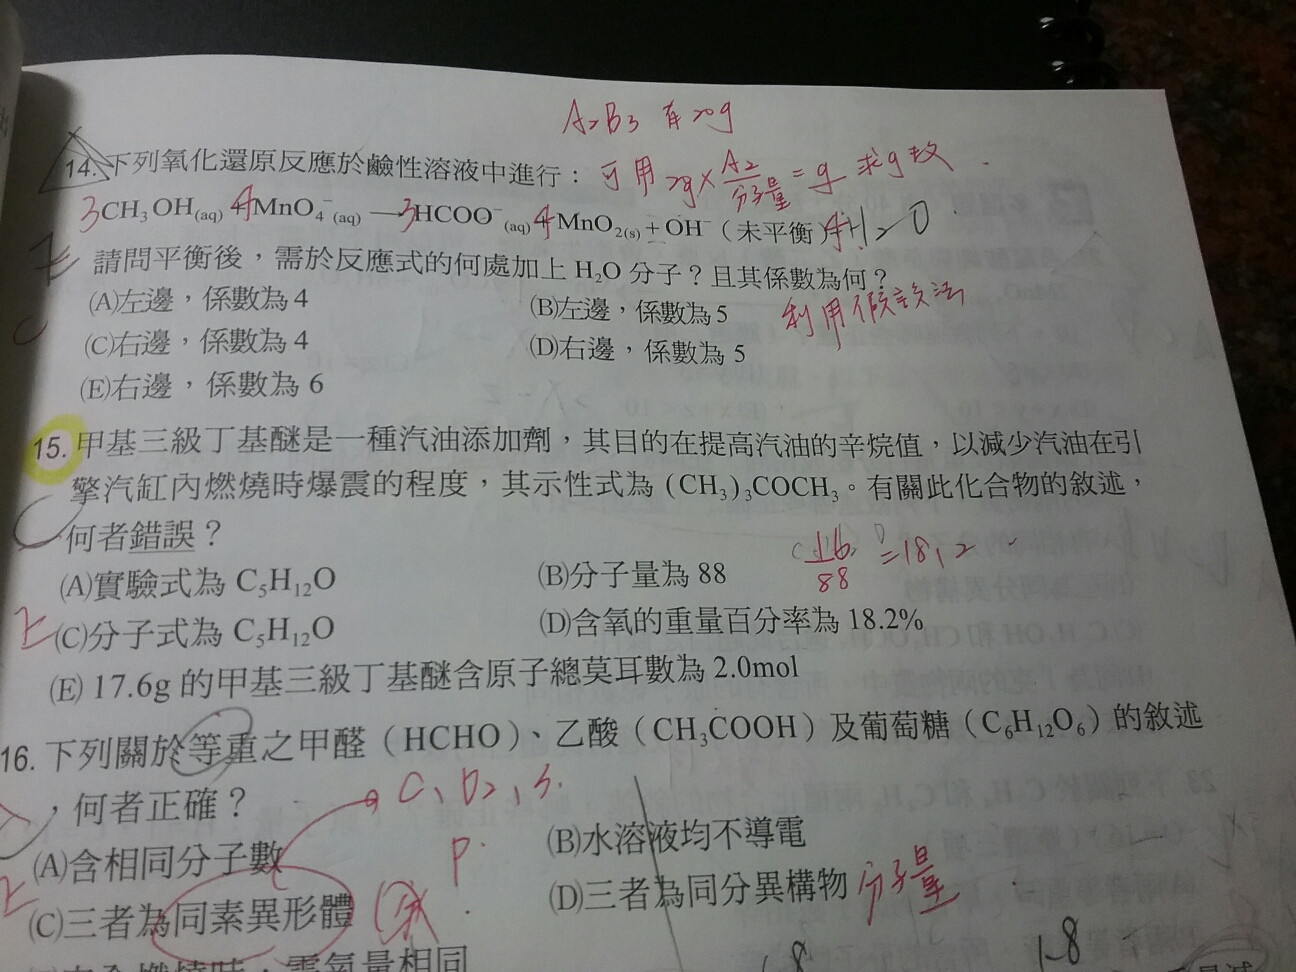 A₂B₃ 有20g
14. 下列氧化還原反應於鹼性溶液中進行： 可用 2g × A2/分子量 = g 求g數
3CH₃OH(aq) 4MnO₄⁻(aq) — 3HCOO⁻(aq) 4MnO₂(s) + OH⁻（未平衡）4H₂O
請問平衡後，需於反應式的何處加上 H₂O 分子？且其係數為何？
(A)左邊，係數為 4 (B)左邊，係數為 5 利用假設法
(C)右邊，係數為 4 (D)右邊，係數為 5
(E)右邊，係數為 6
15. 甲基三級丁基醚是一種汽油添加劑，其目的在提高汽油的辛烷值，以減少汽油在引
擎汽缸內燃燒時爆震的程度，其示性式為 (CH₃)₃COCH₃。有關此化合物的敘述，
何者錯誤？
(A)實驗式為 C₅H₁₂O (B)分子量為 88 16/88 = 18.2
(C)分子式為 C₅H₁₂O (D)含氧的重量百分率為 18.2%
(E) 17.6g 的甲基三級丁基醚含原子總莫耳數為 2.0mol
16. 下列關於等重之甲醛（HCHO）、乙酸（CH₃COOH）及葡萄糖（C₆H₁₂O₆）的敘述
，何者正確？ C, O₂, S.
(A)含相同分子數 P. (B)水溶液均不導電
(C)三者為同素異形體 (D)三者為同分異構物 分子量